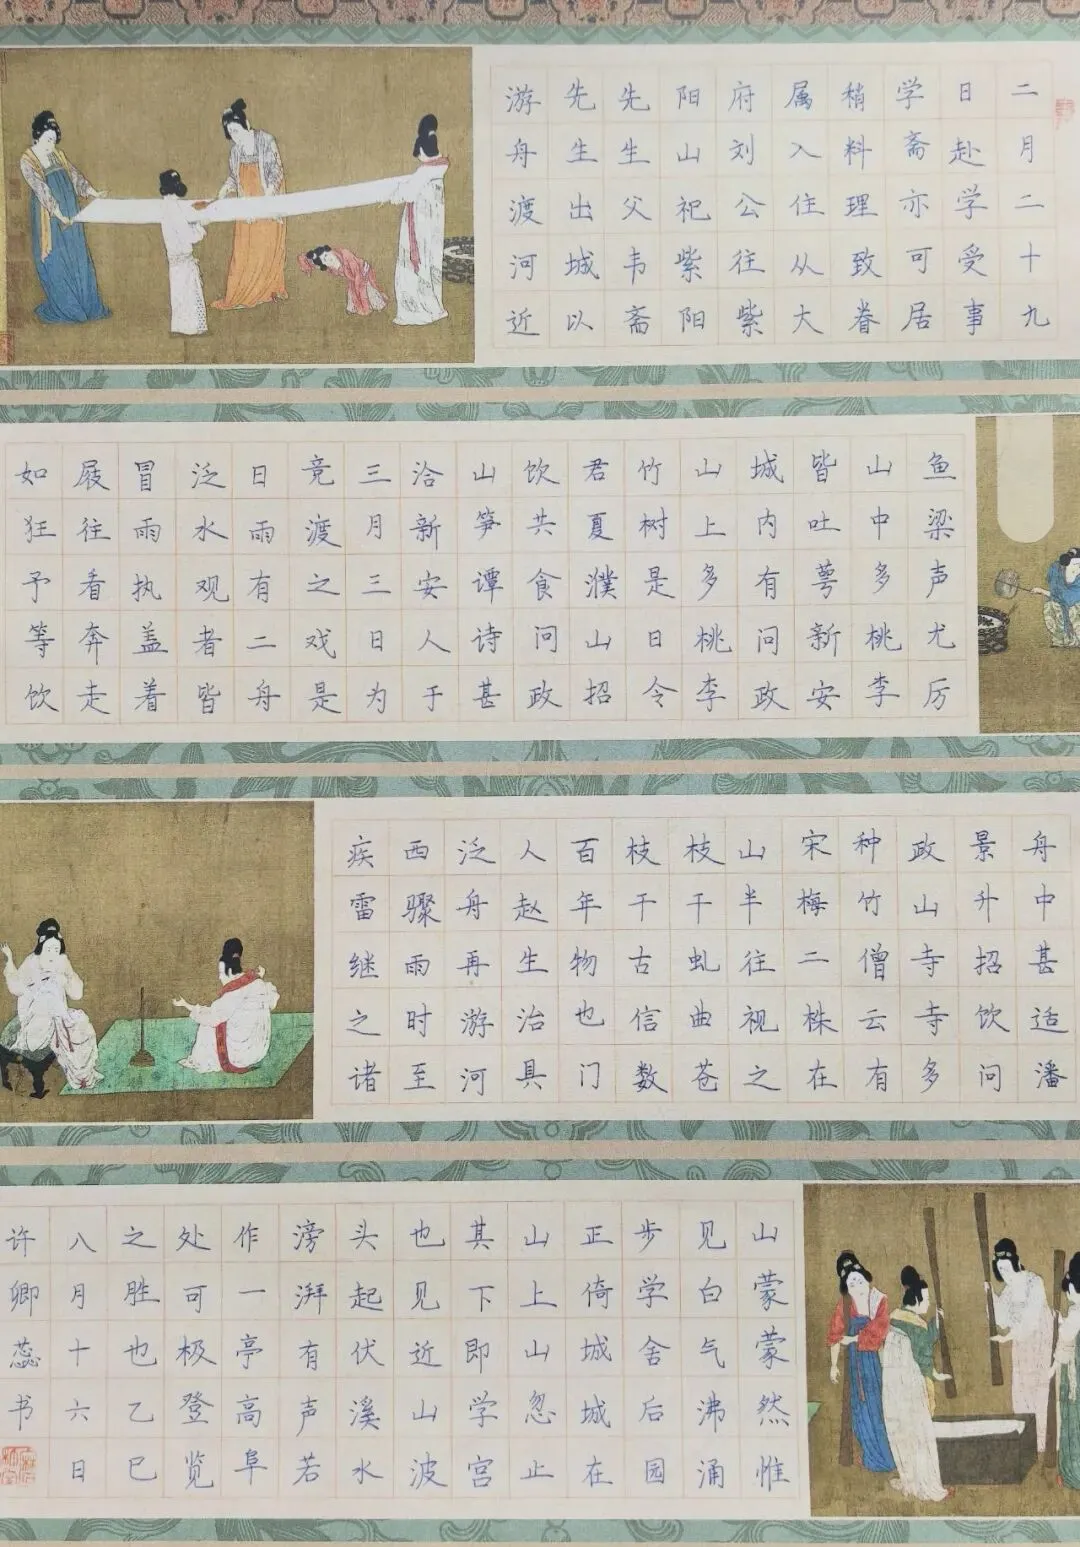 二月二十九
日赴学受事
学斋亦可居
稍料理致眷
属入住从大
府刘公往紫
阳山祀紫阳
先生父韦斋
先生出城以
游舟渡河近
鱼梁声尤厉
山中多桃李
皆吐萼新安
城内有问政
山上多桃李
竹树是日令
君夏濮山招
饮共食问政
山笋谭诗甚
洽新安人于
三月三日为
竞渡之戏是
日雨有二舟
泛水观者皆
冒雨执盖着
屐往看奔走
如狂予等饮
舟中甚适潘
景升招饮问
政山寺寺多
种竹僧云有
宋梅二株在
山半往视之
枝干虬曲苍
枝干古信数
百年物也门
人赵生治具
泛舟再游河
西骤雨时至
疾雷继之诸
山蒙蒙然惟
见白气沸涌
步学舍后园
正倚城城在
山上山忽止
其下即学宫
也见近山波
头起伏溪水
滂湃有声若
作一亭高阜
处可极登览
之胜也乙巳
八月十六日
许卿蕊书